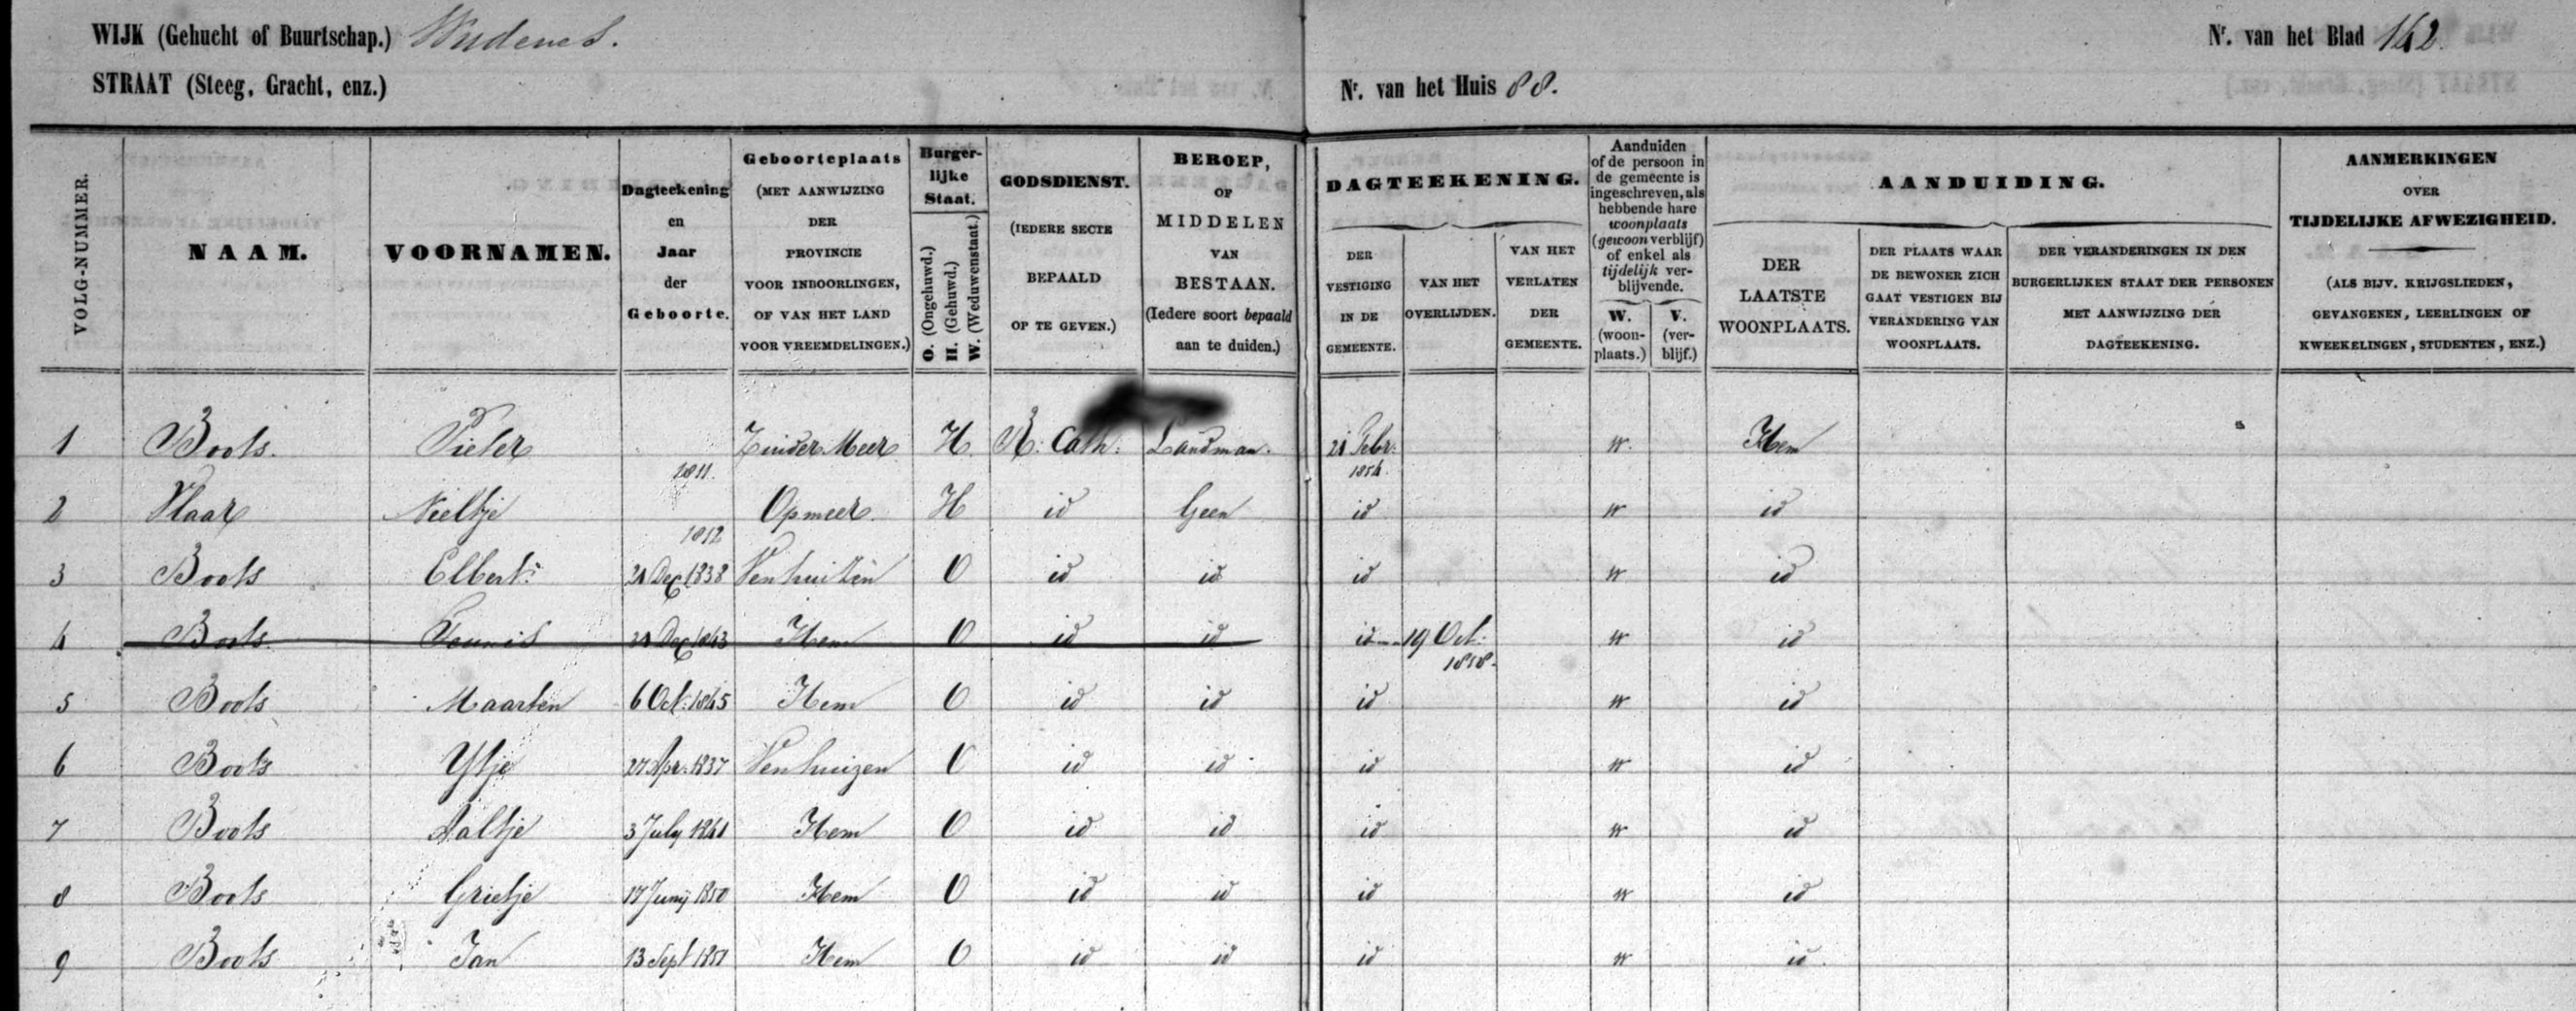 WIJK (Gehucht of Buurtschap.) Wudenes. Nr. van het Blad 162.
STRAAT (Steeg, Gracht, enz.) Nr. van het Huis 88.
VOLG-NUMMER.
NAAM.
VOORNAMEN.
Dagteekening
en
Jaar
der
Geboorte.
Geboorteplaats
(MET AANWIJZING
DER
PROVINCIE
VOOR INBOORLINGEN,
OF VAN HET LAND
VOOR VREEMDELINGEN.)
Burger-
lijke
Staat.
O. (Ongehuwd.)
H. (Gehuwd.)
W. (Weduwenstaat.)
GODSDIENST.
(IEDERE SECTE
BEPAALD
OP TE GEVEN.)
BEROEP,
OF
MIDDELEN
VAN
BESTAAN.
(Iedere soort bepaald
aan te duiden.)
DAGTEEKENING.
DER
VESTIGING
IN DE
GEMEENTE.
VAN HET
OVERLIJDEN.
VAN HET
VERLATEN
DER
GEMEENTE.
Aanduiden
of de persoon in
de gemeente is
ingeschreven, als
hebbende hare
woonplaats
(gewoon verblijf)
of enkel als
tijdelijk ver-
blijvende.
W.
(woon-
plaats.)
V.
(ver-
blijf.)
AANDUIDING.
DER
LAATSTE
WOONPLAATS.
DER PLAATS WAAR
DE BEWONER ZICH
GAAT VESTIGEN BIJ
VERANDERING VAN
WOONPLAATS.
DER VERANDERINGEN IN DEN
BURGERLIJKEN STAAT DER PERSONEN
MET AANWIJZING DER
DAGTEEKENING.
AANMERKINGEN
OVER
TIJDELIJKE AFWEZIGHEID.
(ALS BIJV. KRIJGSLIEDEN,
GEVANGENEN, LEERLINGEN OF
KWEEKELINGEN, STUDENTEN, ENZ.)
1 Boots. Pieter 1811. Zuider Meer H R: Cath: Landman. 21 Febr: 1854. W. Hem
2 Vlaar Neeltje 1812 Opmeer H id Geen id W id
3 Boots Elbert: 21 Dec 1838 Venhuizen O id id id W id
4 Boots Teunis Dec 1843 Hem O id id id 19 Oct: 1858. W id
5 Boots Maarten 6 Oct: 1845 Hem O id id id W id
6 Boots Ytje 27 Apr: 1837 Venhuizen O id id id W id
7 Boots Aaltje 3 July 1841 Hem O id id id W id
8 Boots Grietje 17 Junij 1850 Hem O id id id W id
9 Boots Jan 13 Sept 1851 Hem O id id id W id